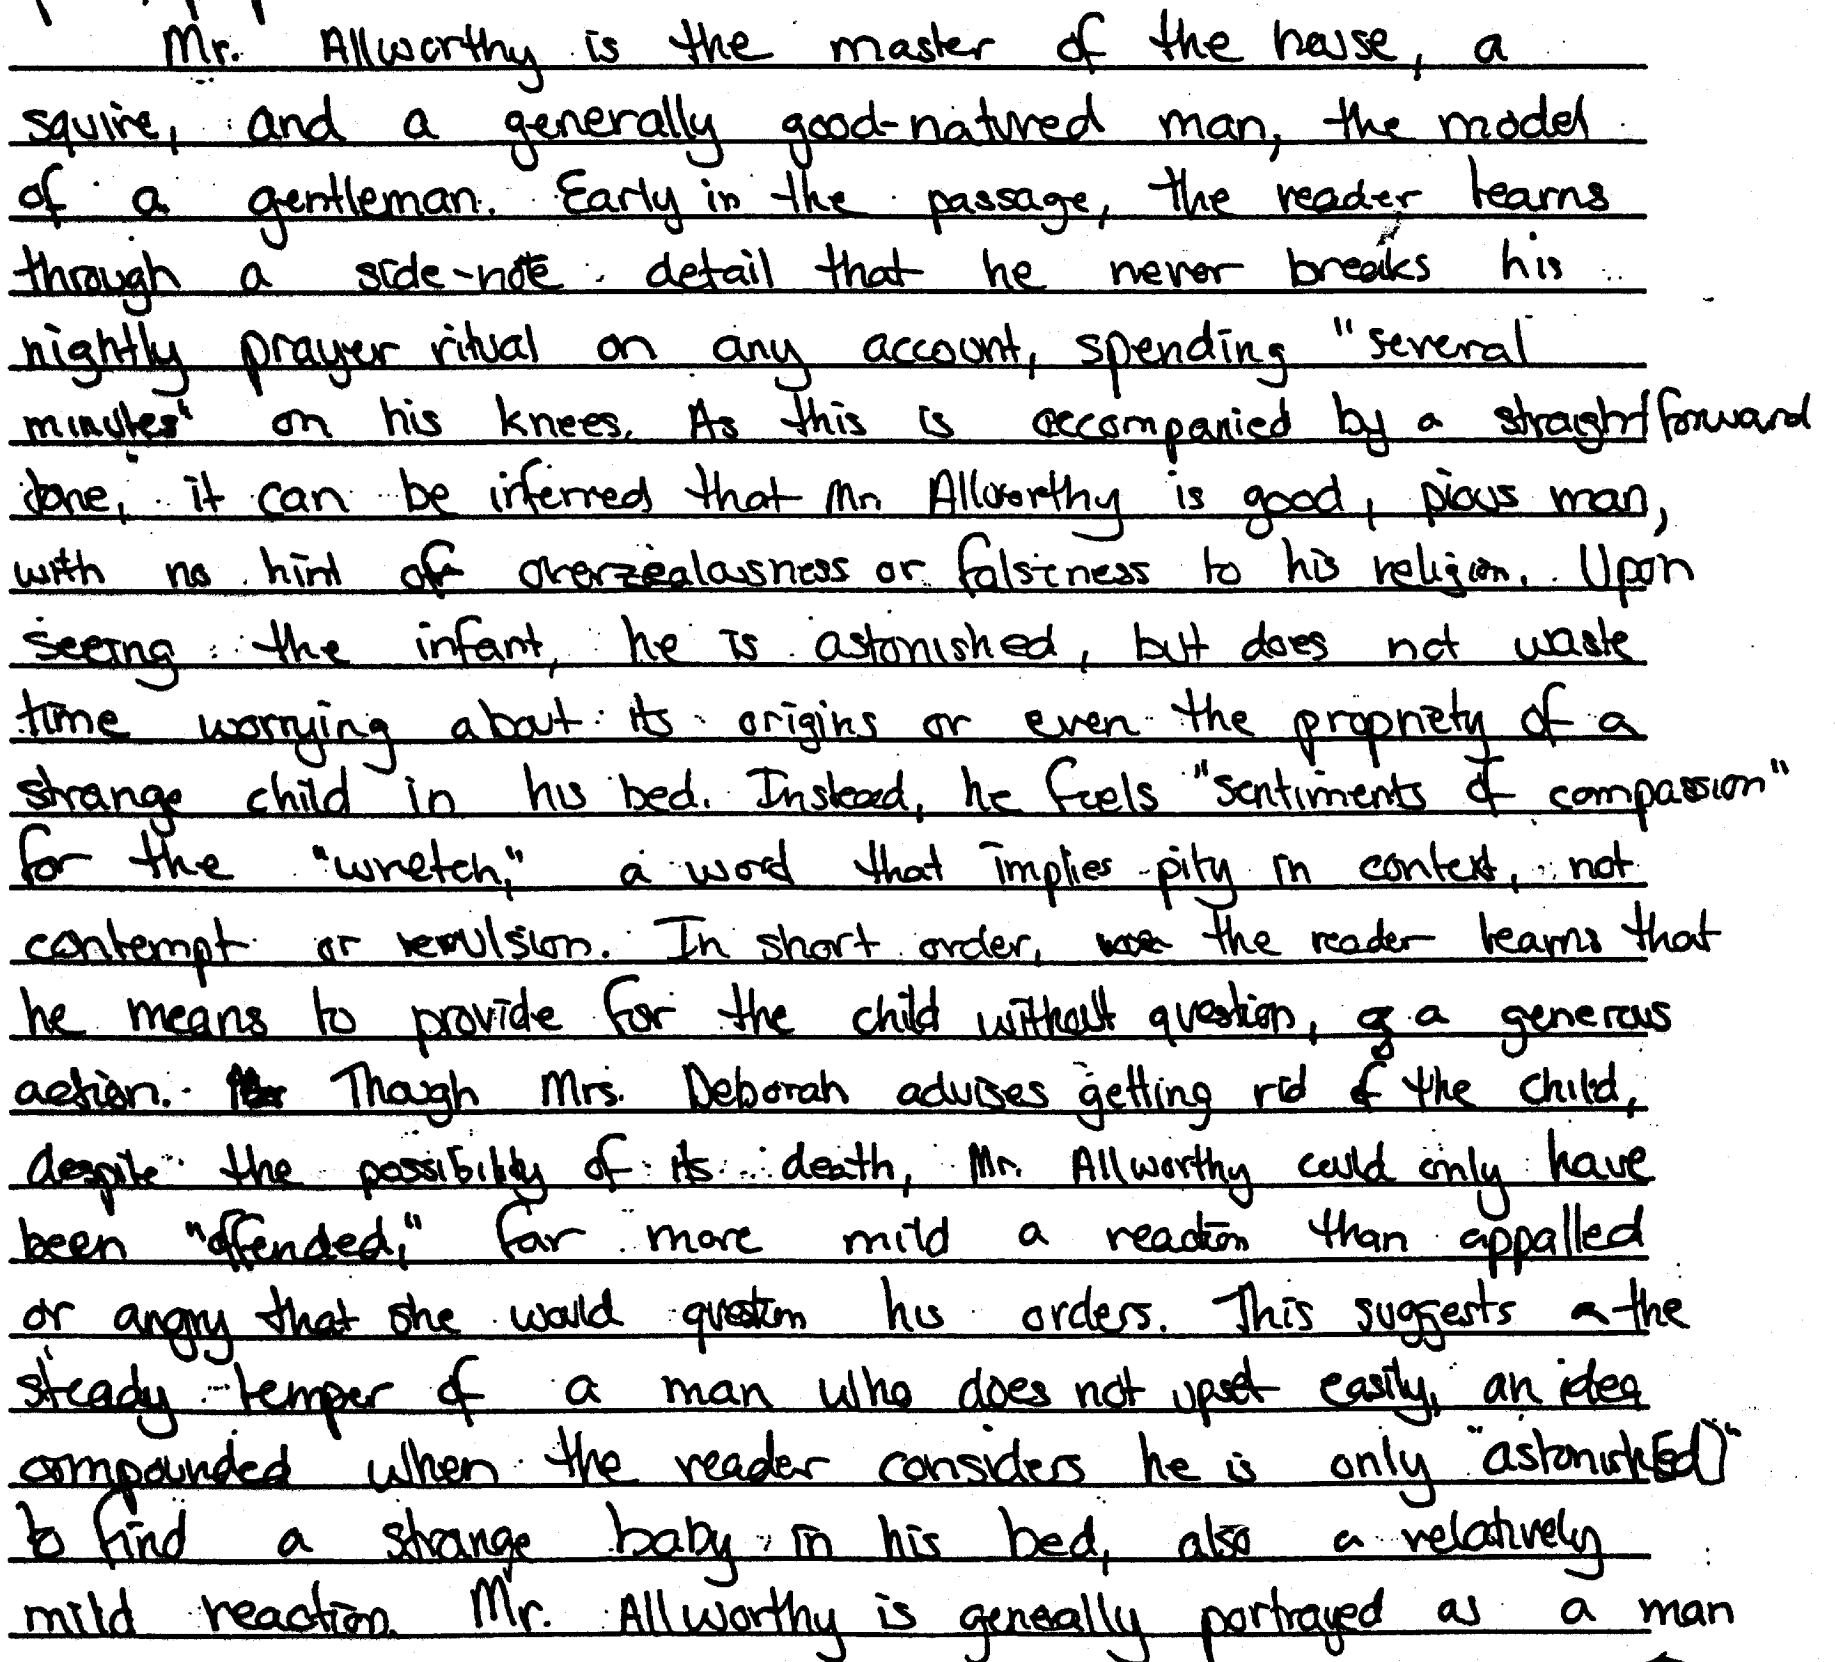 Mr. Allworthy is the master of the house, a
squire, and a generally good-natured man, the model
of a gentleman. Early in the passage, the reader learns
through a side-note detail that he never breaks his
nightly prayer ritual on any account, spending "several
minutes" on his knees. As this is accompanied by a straightforward
done, it can be inferred that Mr. Allworthy is good, pious man,
with no hint of overzealousness or falseness to his religion. Upon
seeing the infant, he is astonished, but does not waste
time worrying about its origins or even the propriety of a
strange child in his bed. Instead, he feels "sentiments of compassion"
for the "wretch," a word that implies pity in context, not
contempt or revulsion. In short order, the reader learns that
he means to provide for the child without question, a generous
action. Though Mrs. Deborah advises getting rid of the child,
despite the possibility of its death, Mr. Allworthy could only have
been "offended," far more mild a reaction than appalled
or angry that she would question his orders. This suggests the
steady temper of a man who does not upset easily, an idea
compounded when the reader considers he is only "astonish[ed]"
to find a strange baby in his bed, also a relatively
mild reaction. Mr. Allworthy is generally portrayed as a man